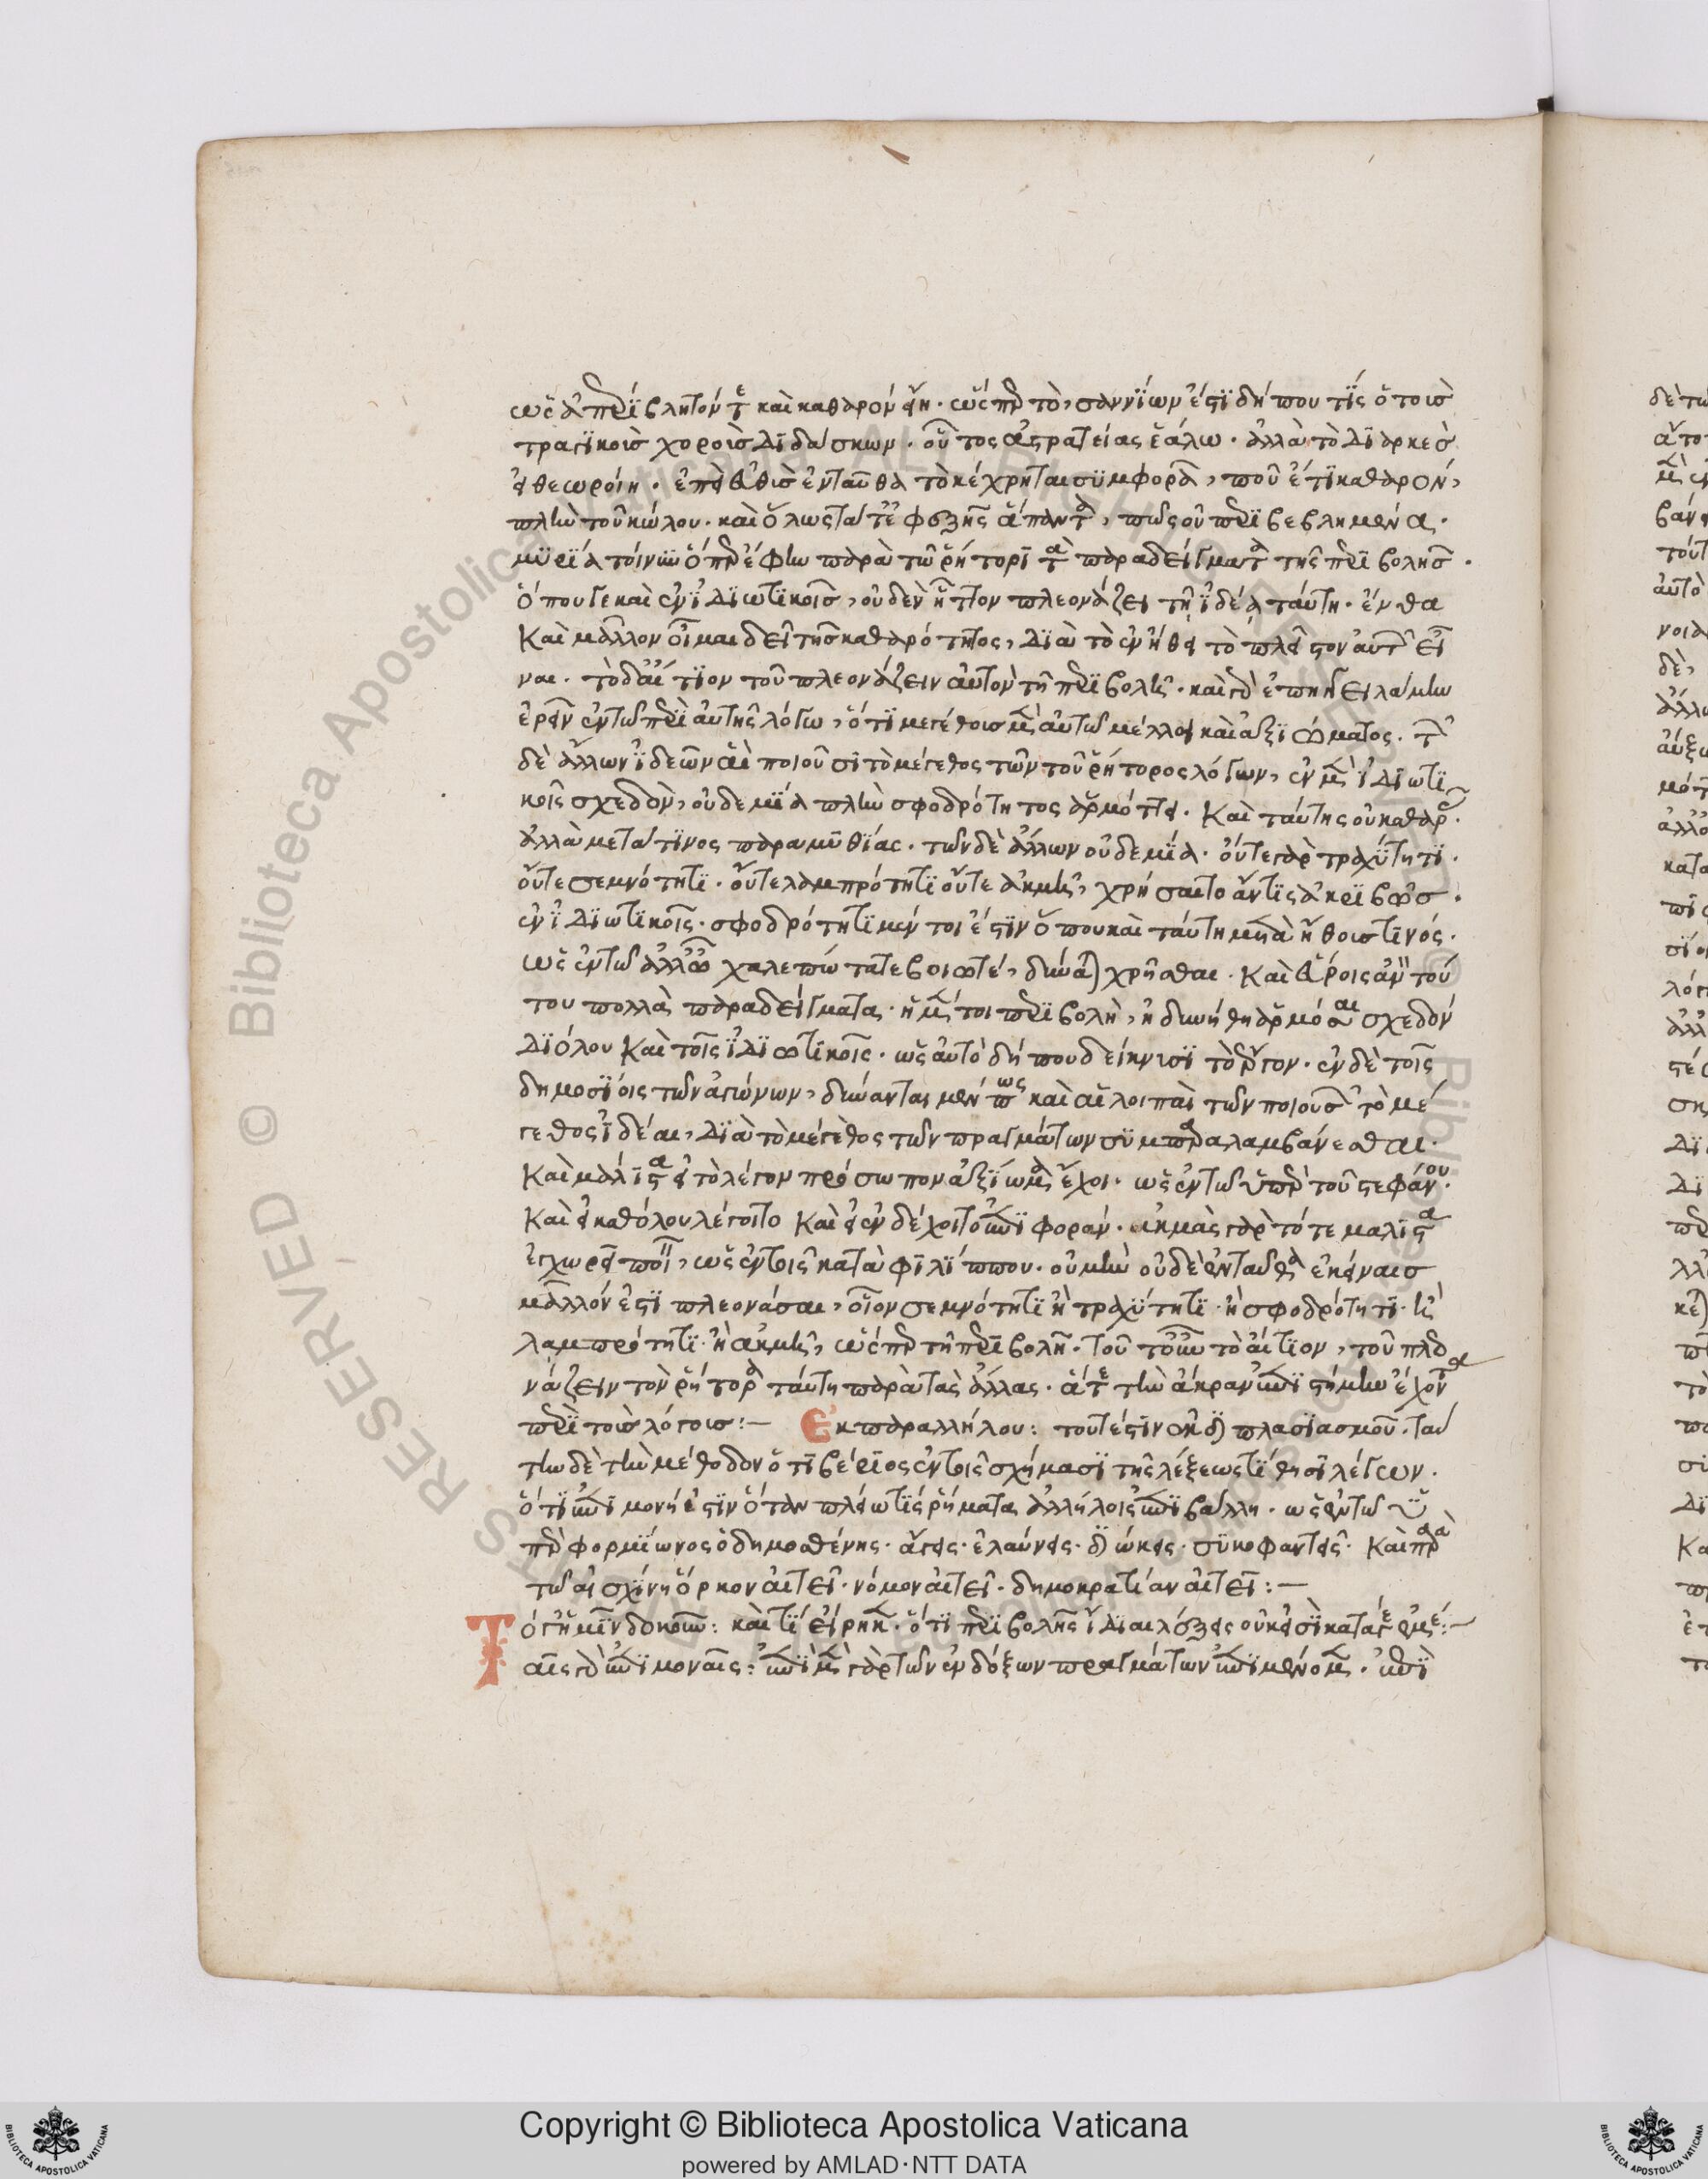 ὡς ἀπερίβλητόν τε καὶ καθαρὸν εἴη. ὥσπερ τὸ, σαννίων ἐστὶ δήπου τίς ὁ τοὺς
τραγικοὺς χοροὺς διδάσκων. οὗτος ἀστρατείας ἑάλω. ἀλλὰ τὸ διαρκὲς
εἰ θεωροίη. ἐπεὶ εὐθὺς ἐνταῦθα τὸ κέχρηται συμφορᾷ, ποῦ ἔτι καθαρὸν,
πλὴν τοῦ κώλου. καὶ ὅλως τά τε ἐφεξῆς ἅπαντα, πῶς οὐ περιβεβλημένα.
μυρία τοίνυν ὅπερ ἔφην παρὰ τῷ ῥήτορι τὰ παραδείγματα τῆς περιβολῆς.
ὅπου γε καὶ ἐν ἰδιωτικοῖς, οὐδὲν ἧττον πλεονάζει τῇ ἰδέᾳ ταύτῃ. ἔνθα
καὶ μᾶλλον οἶμαι δεῖ τῆς καθαρότητος, διὰ τὸ ἐν ἤθει τὸ πλεῖστον αὐτῶν εἶ
ναι. τὸ δ' αἴτιον τοῦ πλεονάζειν αὐτὸν τῇ περιβολῇ. καὶ γὰρ ἐπηγγειλάμην
ἐρεῖν ἐν τῷ περὶ αὐτῆς λόγῳ, ὅτι μεγέθους μὲν αὐτῷ μέλλει καὶ ἀξιώματος. τῶν
δὲ ἄλλων ἰδεῶν αἳ ποιοῦσι τὸ μέγεθος τῶν τοῦ ῥήτορος λόγων, ἐν μὲν ἰδιωτι
κοῖς σχεδὸν, οὐδεμία πλὴν σφοδρότητος ἁρμόττει. καὶ ταύτης οὐ καθαρῶς.
ἀλλὰ μετά τινος παραμυθίας. τῶν δὲ ἄλλων οὐδεμία. οὔτε γὰρ τραχύτητι.
οὔτε σεμνότητι. οὔτε λαμπρότητι οὔτε ἀκμῇ, χρήσαιτο ἄν τις ἀκριβῶς.
ἐν ἰδιωτικοῖς. σφοδρότητι μέν τοι ἔστιν ὅπου καὶ ταύτῃ μετὰ ἤθους τινός.
ὡς ἐν τῷ ἀλλ' ὦ χαλεπώτατε βοιωτέ, δύναται χρῆσθαι. καὶ εὕροις ἂν τού
του πολλὰ παραδείγματα. ἡ μέντοι περιβολὴ, ἠδυνήθη ἁρμόσαι σχεδὸν
διόλου καὶ τοῖς ἰδιωτικοῖς. ὡς αὐτὸ δήπου δείκνυσι τὸ ἔργον. ἐν δὲ τοῖς
δημοσίοις τῶν ἀγώνων, δύνανται μέν πως καὶ αἱ λοιπαὶ τῶν ποιουσῶν τὸ μέ
γεθος ἰδέαι, διὰ τὸ μέγεθος τῶν πραγμάτων συμπαραλαμβάνεσθαι.
καὶ μάλιστα εἰ τὸ λέγον πρόσωπον ἀξίωμα ἔχοι. ὡς ἐν τῷ ὑπὲρ τοῦ στεφάνου.
καὶ εἰ καθόλου λέγοιτο καὶ εἰ ἐνδέχοιτο ἐπιφοράν. ἀκμὰς γὰρ τότε μάλιστα
ἐγχωρεῖ ποιεῖν, ὡς ἐν τοῖς κατὰ φιλίππου. οὐ μὴν οὐδὲ ἐνταῦθα ἐκείναις
μᾶλλόν ἐστι πλεονάσαι, οἷον σεμνότητι ἢ τραχύτητι. ἢ σφοδρότητι. ἢ
λαμπρότητι. ἢ ἀκμῇ, ὥσπερ τῇ περιβολῇ. τοῦτο τοίνυν τὸ αἴτιον, τοῦ πλεο
νάζειν τὸν ῥήτορα ταύτῃ παρὰ τὰς ἄλλας. ἅτε τὴν ἄκραν ἐπιστήμην ἔχοντα
περὶ τοὺς λόγους:— Ἐκ παραλλήλου: τουτέστιν ἐκ διπλασιασμοῦ. ταύ
την δὲ τὴν μέθοδον ὁ τιβέριος ἐν τοῖς σχήμασι τῆς λέξεως τίθησι λέγων.
ὅτι ἐπιμονή ἐστιν ὅταν πλείω τις ῥήματα ἀλλήλοις ἐπιβάλλῃ. ὡς ἐν τῷ ὑ
πὲρ φορμίωνος ὁ δημοσθένης. ἄγεις. ἐλαύνεις. διώκεις. συκοφαντεῖς. καὶ παρὰ
τῷ αἰσχίνῃ ὅρκον αἰτεῖ. νόμον αἰτεῖ. δημοκρατίαν αἰτεῖ:—
Τό γε ἡμῖν δοκοῦν: καὶ τί εἰρήκαμεν. ὅτι περιβολῆς ἴδιαι λέξεις οὐκ εἰσὶ κατά γε ἐμέ:—
αἷς γὰρ ἐπιμοναῖς: ἐπὶ μὲν γὰρ τῶν ἐνδόξων πραγμάτων ἐπιμένομεν. ἐπὶ